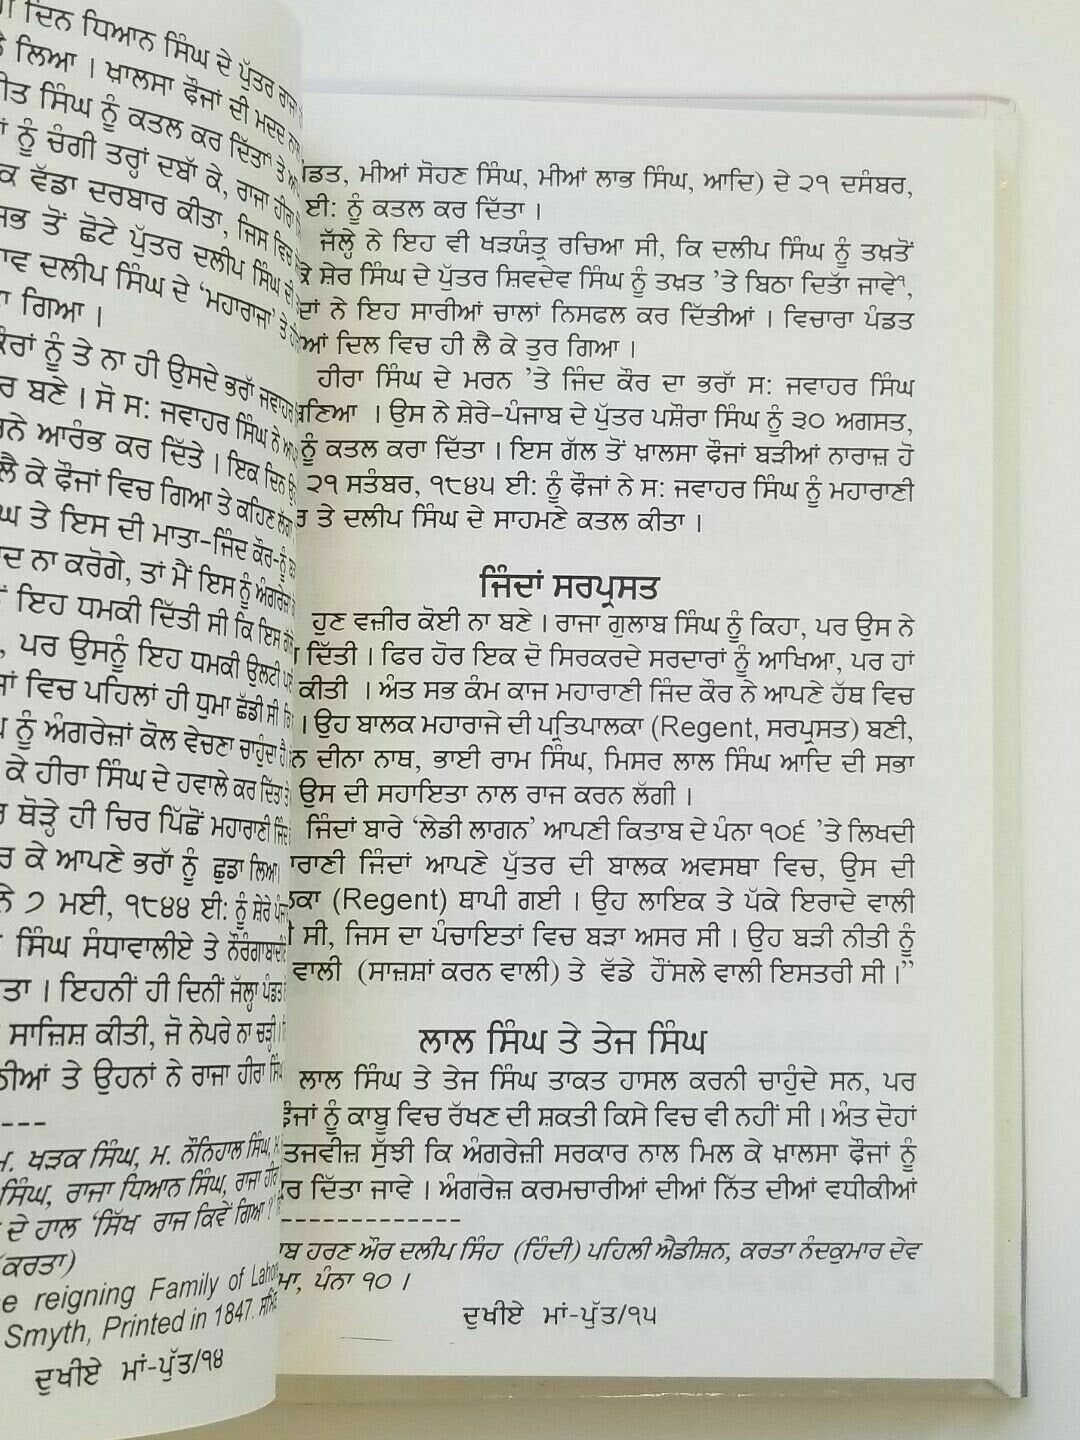 ਦਿਨ ਧਿਆਨ ਸਿੰਘ ਦੇ ਪੁੱਤਰ ਰਾਜਾ
ਲਿਆ । ਖ਼ਾਲਸਾ ਫੌਜਾਂ ਦੀ ਮਦਦ ਨਾਲ
ਸਿੰਘ ਨੂੰ ਕਤਲ ਕਰ ਦਿੱਤਾ ਤੇ
ਨੂੰ ਚੰਗੀ ਤਰ੍ਹਾਂ ਦਬਾੱ ਕੇ, ਰਾਜਾ ਹੀਰਾ
ਵੱਡਾ ਦਰਬਾਰ ਕੀਤਾ, ਜਿਸ ਵਿਚ
ਤੋਂ ਛੋਟੇ ਪੁੱਤਰ ਦਲੀਪ ਸਿੰਘ ਦੀ
ਦਲੀਪ ਸਿੰਘ ਦੇ ‘ਮਹਾਰਾਜਾ’ ਤੇ
ਗਿਆ ।
ਨੂੰ ਤੇ ਨਾ ਹੀ ਉਸਦੇ ਭਰਾੱ ਜਵਾਹਰ
ਬਣੇ । ਸੋ ਸ: ਜਵਾਹਰ ਸਿੰਘ ਨੇ
ਆਰੰਭ ਕਰ ਦਿੱਤੇ । ਇਕ ਦਿਨ
ਲੈ ਕੇ ਫੌਜਾਂ ਵਿਚ ਗਿਆ ਤੇ ਕਹਿਣ ਲੱਗਾ
ਤੇ ਇਸ ਦੀ ਮਾਤਾ-ਜਿੰਦ ਕੌਰ-ਨੂੰ
ਨਾ ਕਰੋਗੇ, ਤਾਂ ਮੈਂ ਇਸ ਨੂੰ ਅੰਗਰੇਜ਼ਾਂ
ਇਹ ਧਮਕੀ ਦਿੱਤੀ ਸੀ ਕਿ ਇਸ
ਪਰ ਉਸਨੂੰ ਇਹ ਧਮਕੀ ਉਲਟੀ
ਵਿਚ ਪਹਿਲਾਂ ਹੀ ਧੁਮਾ ਛੱਡੀ ਸੀ
ਨੂੰ ਅੰਗਰੇਜ਼ਾਂ ਕੋਲ ਵੇਚਣਾ ਚਾਹੁੰਦਾ ਹੈ
ਕੇ ਹੀਰਾ ਸਿੰਘ ਦੇ ਹਵਾਲੇ ਕਰ ਦਿੱਤਾ
ਥੋੜ੍ਹੇ ਹੀ ਚਿਰ ਪਿੱਛੋਂ ਮਹਾਰਾਣੀ ਜਿੰਦ
ਕੇ ਆਪਣੇ ਭਰਾੱ ਨੂੰ ਛੁਡਾ ਲਿਆ।
ਨੇ ੭ ਮਈ, ੧੮੪੪ ਈ: ਨੂੰ ਸ਼ੇਰੇ
ਸਿੰਘ ਸੰਧਾਵਾਲੀਏ ਤੇ ਨੌਰੰਗਾਬਾਦੀਏ
। ਇਹਨੀਂ ਹੀ ਦਿਨੀਂ ਜੱਲ੍ਹਾ ਪੰਡਤ
ਸਾਜ਼ਿਸ਼ ਕੀਤੀ, ਜੋ ਨੇਪਰੇ ਨਾ ਚੜ੍ਹੀ।
ਤੇ ਉਹਨਾਂ ਨੇ ਰਾਜਾ ਹੀਰਾ ਸਿੰਘ
ਖੜਕ ਸਿੰਘ, ਮ. ਨੌਨਿਹਾਲ ਸਿੰਘ,
ਸਿੰਘ, ਰਾਜਾ ਧਿਆਨ ਸਿੰਘ, ਰਾਜਾ ਹੀਰਾ
ਦੇ ਹਾਲ ‘ਸਿੱਖ ਰਾਜ ਕਿਵੇਂ ਗਿਆ ?’
(ਕਰਤਾ)
reigning Family of Lahore
Smyth, Printed in 1847.
ਦੁਖੀਏ ਮਾਂ-ਪੁੱਤ/੧੪
ਮੀਆਂ ਸੋਹਣ ਸਿੰਘ, ਮੀਆਂ ਲਾਭ ਸਿੰਘ, ਆਦਿ) ਦੇ ੨੧ ਦਸੰਬਰ,
ਈ: ਨੂੰ ਕਤਲ ਕਰ ਦਿੱਤਾ ।
ਜੱਲ੍ਹੇ ਨੇ ਇਹ ਵੀ ਖੜਯੰਤ੍ਰ ਰਚਿਆ ਸੀ, ਕਿ ਦਲੀਪ ਸਿੰਘ ਨੂੰ ਤਖਤੋਂ
ਸ਼ੇਰ ਸਿੰਘ ਦੇ ਪੁੱਤਰ ਸ਼ਿਵਦੇਵ ਸਿੰਘ ਨੂੰ ਤਖ਼ਤ ’ਤੇ ਬਿਠਾ ਦਿਤਾ ਜਾਵੇ੧,
ਨੇ ਇਹ ਸਾਰੀਆਂ ਚਾਲਾਂ ਨਿਸਫਲ ਕਰ ਦਿੱਤੀਆਂ । ਵਿਚਾਰਾ ਪੰਡਤ
ਦਿਲ ਵਿਚ ਹੀ ਲੈ ਕੇ ਤੁਰ ਗਿਆ ।
ਹੀਰਾ ਸਿੰਘ ਦੇ ਮਰਨ ’ਤੇ ਜਿੰਦ ਕੌਰ ਦਾ ਭਰਾੱ ਸ: ਜਵਾਹਰ ਸਿੰਘ
ਬਣਿਆ । ਉਸ ਨੇ ਸ਼ੇਰੇ-ਪੰਜਾਬ ਦੇ ਪੁੱਤਰ ਪਸ਼ੌਰਾ ਸਿੰਘ ਨੂੰ ੩੦ ਅਗਸਤ,
ਨੂੰ ਕਤਲ ਕਰਾ ਦਿੱਤਾ । ਇਸ ਗੱਲ ਤੋਂ ਖ਼ਾਲਸਾ ਫੌਜਾਂ ਬੜੀਆਂ ਨਾਰਾਜ਼ ਹੋ
੨੧ ਸਤੰਬਰ, ੧੮੪੫ ਈ: ਨੂੰ ਫੌਜਾਂ ਨੇ ਸ: ਜਵਾਹਰ ਸਿੰਘ ਨੂੰ ਮਹਾਰਾਣੀ
ਤੇ ਦਲੀਪ ਸਿੰਘ ਦੇ ਸਾਹਮਣੇ ਕਤਲ ਕੀਤਾ ।
ਜਿੰਦਾਂ ਸਰਪ੍ਰਸਤ
ਹੁਣ ਵਜ਼ੀਰ ਕੋਈ ਨਾ ਬਣੇ । ਰਾਜਾ ਗੁਲਾਬ ਸਿੰਘ ਨੂੰ ਕਿਹਾ, ਪਰ ਉਸ ਨੇ
ਦਿੱਤੀ । ਫਿਰ ਹੋਰ ਇਕ ਦੋ ਸਿਰਕਰਦੇ ਸਰਦਾਰਾਂ ਨੂੰ ਆਖਿਆ, ਪਰ ਹਾਂ
ਕੀਤੀ । ਅੰਤ ਸਭ ਕੰਮ ਕਾਜ ਮਹਾਰਾਣੀ ਜਿੰਦ ਕੌਰ ਨੇ ਆਪਣੇ ਹੱਥ ਵਿਚ
। ਉਹ ਬਾਲਕ ਮਹਾਰਾਜੇ ਦੀ ਪ੍ਰਤਿਪਾਲਕਾ (Regent, ਸਰਪ੍ਰਸਤ) ਬਣੀ,
ਦੀਨਾ ਨਾਥ, ਭਾਈ ਰਾਮ ਸਿੰਘ, ਮਿਸਰ ਲਾਲ ਸਿੰਘ ਆਦਿ ਦੀ ਸਭਾ
ਉਸ ਦੀ ਸਹਾਇਤਾ ਨਾਲ ਰਾਜ ਕਰਨ ਲੱਗੀ ।
ਜਿੰਦਾਂ ਬਾਰੇ ‘ਲੇਡੀ ਲਾਗਨ’ ਆਪਣੀ ਕਿਤਾਬ ਦੇ ਪੰਨਾ ੧੦੬ ’ਤੇ ਲਿਖਦੀ
ਜਿੰਦਾਂ ਆਪਣੇ ਪੁੱਤਰ ਦੀ ਬਾਲਕ ਅਵਸਥਾ ਵਿਚ, ਉਸ ਦੀ
(Regent) ਥਾਪੀ ਗਈ । ਉਹ ਲਾਇਕ ਤੇ ਪੱਕੇ ਇਰਾਦੇ ਵਾਲੀ
ਸੀ, ਜਿਸ ਦਾ ਪੰਚਾਇਤਾਂ ਵਿਚ ਬੜਾ ਅਸਰ ਸੀ । ਉਹ ਬੜੀ ਨੀਤੀ ਨੂੰ
ਵਾਲੀ (ਸਾਜ਼ਸ਼ਾਂ ਕਰਨ ਵਾਲੀ) ਤੇ ਵੱਡੇ ਹੌਂਸਲੇ ਵਾਲੀ ਇਸਤਰੀ ਸੀ ।”
ਲਾਲ ਸਿੰਘ ਤੇ ਤੇਜ ਸਿੰਘ
ਲਾਲ ਸਿੰਘ ਤੇ ਤੇਜ ਸਿੰਘ ਤਾਕਤ ਹਾਸਲ ਕਰਨੀ ਚਾਹੁੰਦੇ ਸਨ, ਪਰ
ਨੂੰ ਕਾਬੂ ਵਿਚ ਰੱਖਣ ਦੀ ਸ਼ਕਤੀ ਕਿਸੇ ਵਿਚ ਵੀ ਨਹੀਂ ਸੀ । ਅੰਤ ਦੋਹਾਂ
ਤਜਵੀਜ਼ ਸੁੱਝੀ ਕਿ ਅੰਗਰੇਜ਼ੀ ਸਰਕਾਰ ਨਾਲ ਮਿਲ ਕੇ ਖ਼ਾਲਸਾ ਫੌਜਾਂ ਨੂੰ
ਦਿੱਤਾ ਜਾਵੇ । ਅੰਗਰੇਜ਼ ਕਰਮਚਾਰੀਆਂ ਦੀਆਂ ਨਿੱਤ ਦੀਆਂ ਵਧੀਕੀਆਂ
ਹਰਣ ਔਰ ਦਲੀਪ ਸਿੰਹ (ਹਿੰਦੀ) ਪਹਿਲੀ ਐਡੀਸ਼ਨ, ਕਰਤਾ ਨੰਦਕੁਮਾਰ ਦੇਵ
ਪੰਨਾ ੧੦ ।
ਦੁਖੀਏ ਮਾਂ-ਪੁੱਤ/੧੫